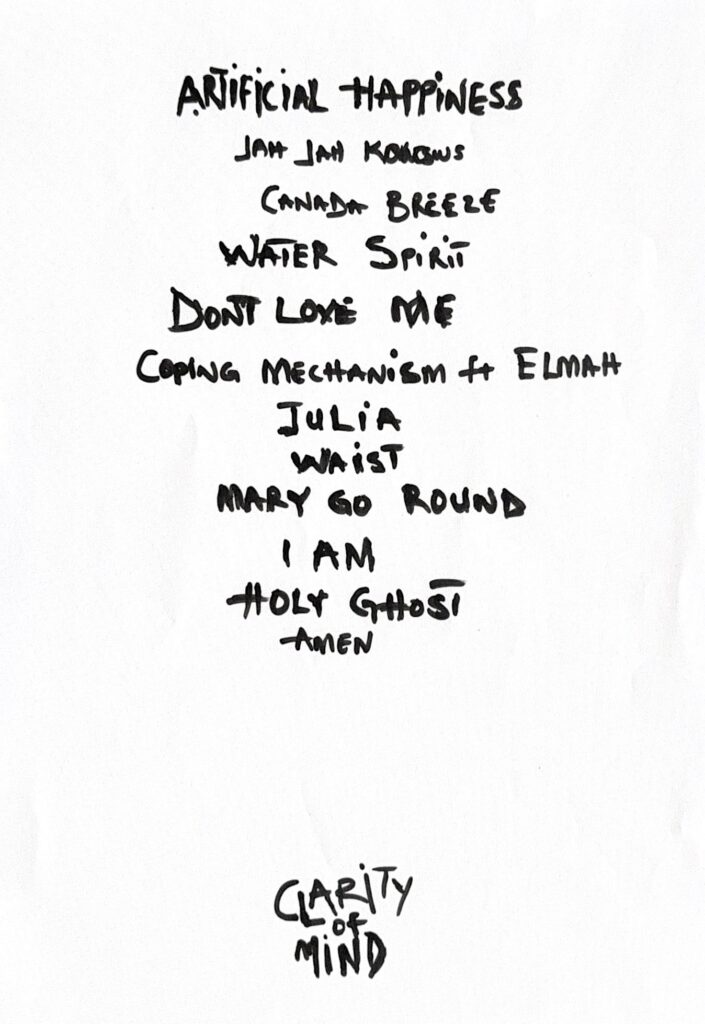 ARTIFICIAL HAPPINESS
JAH JAH
CANADA BREEZE
WATER SPIRIT
DONT LOVE ME
COPING MECHANISM ft ELMAH
JULIA
WAIST
MARY GO ROUND
I AM
HOLY GHOST
AMEN
CLARITY
of
MIND